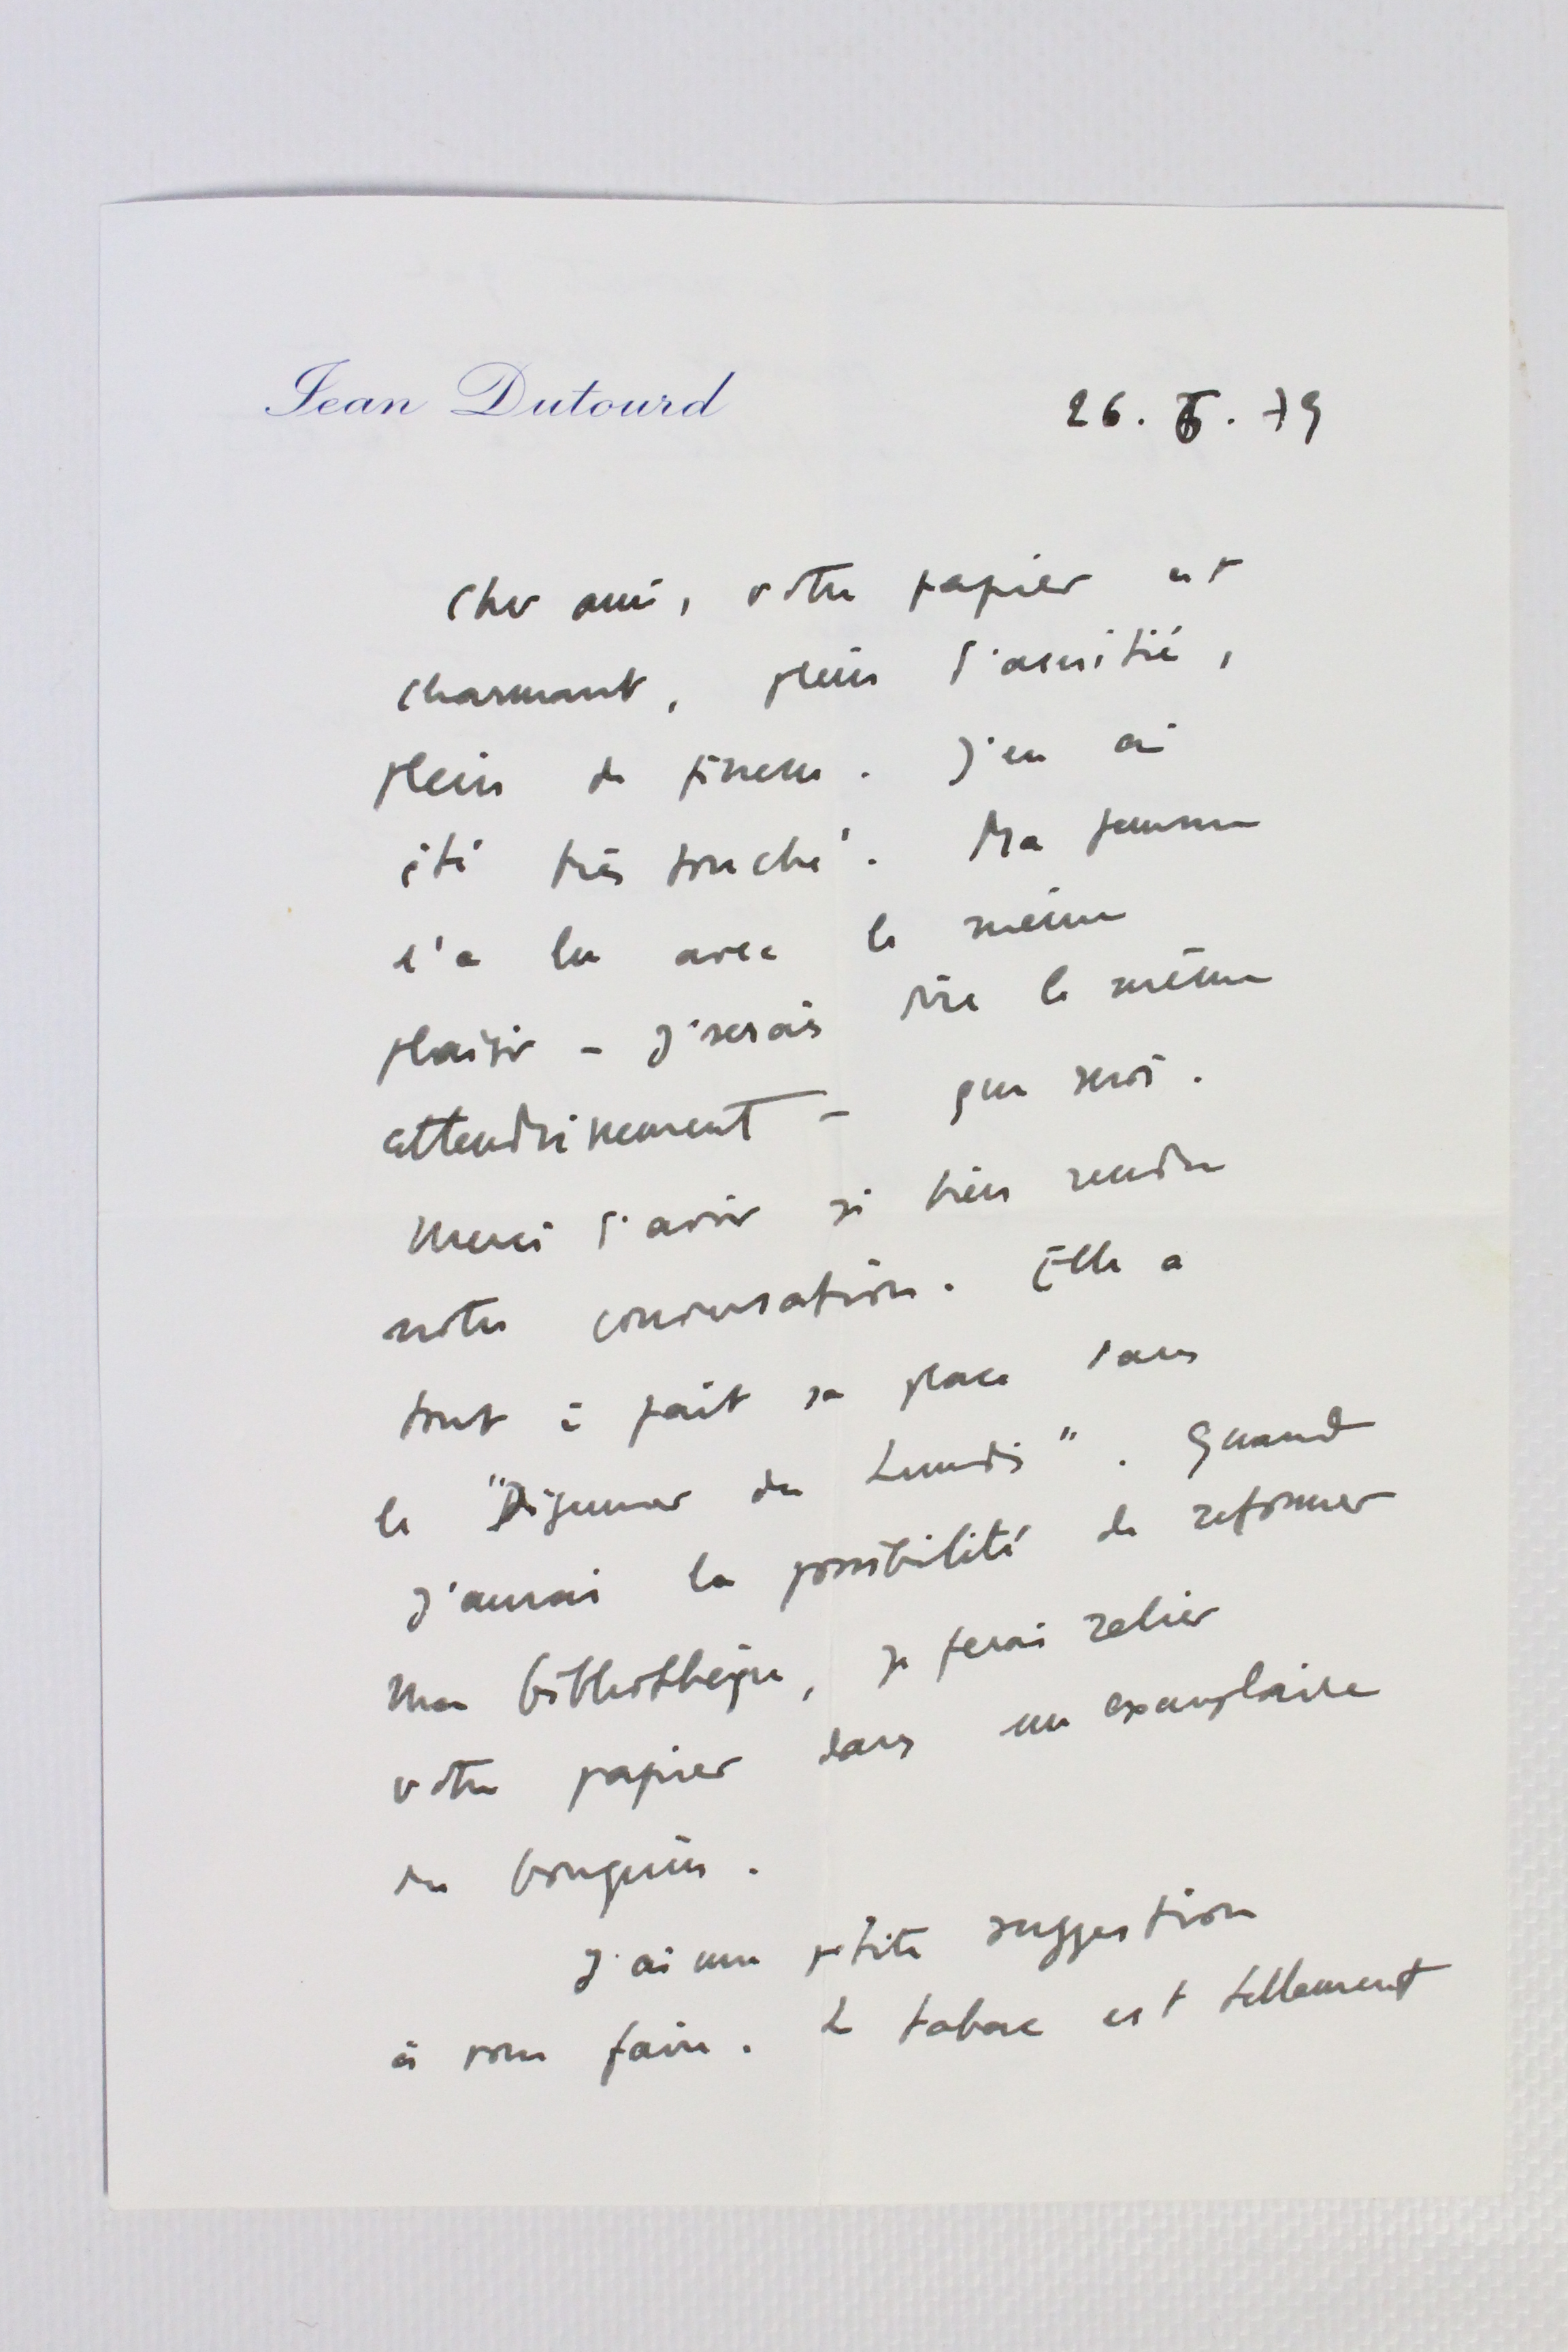 Jean Dutourd
26. 6. 79
Cher ami, votre papier est
charmant, plein d'amitié,
plein de finesse. J'en ai
été très touché. Ma femme
l'a lu avec le même
plaisir - j'oserais dire le même
attendrissement - que moi.
Merci d'avoir si bien rendu
notre conversation. Elle a
tout à fait sa place dans
le "Déjeuner du Lundi". Quand
j'aurai la possibilité de reformer
ma bibliothèque, je ferai relier
votre papier dans un exemplaire
du bouquin.
J'ai une petite suggestion
à vous faire. Le tabac est tellement